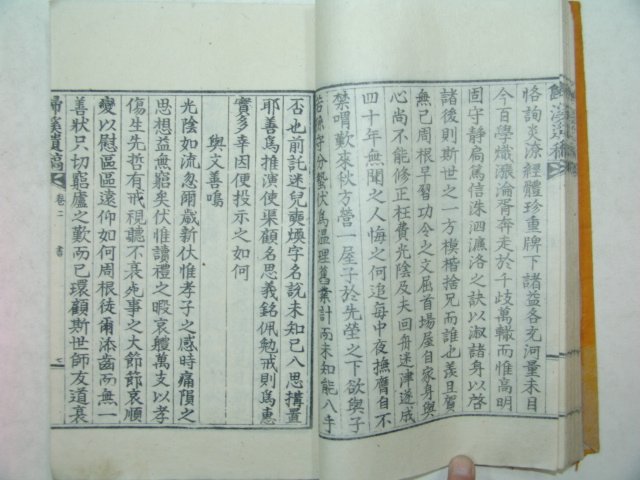 恪詢炎潦經體珍重牌下諸益各克河量未目
今百學熾漲淪胥奔走於千歧萬轍而惟高明
固守靜扃篤信洙泗濂洛之訣以淑諸身以啓
諸後則斯世之一方模楷捨兄而誰也羨且賀
無已周根早習功令之文屈首場屋自家身與
心尚不能修正枉費光陰及夫回舟迷津遂成
四十年無聞之人悔之何追每中夜撫膺自不
禁喟歎來秋方營一屋子於先塋之下欲與子
守分蟄伏爲溫理舊業計而未知能入手
否也前託迷兒奭煥字名說未知已入思搆置
耶善爲推演使渠顧名思義銘佩勉戒則爲惠
實多幸因便投示之如何
與文善鳴
光陰如流忽爾歲新伏惟孝子之感時痛隕之
思想益無窮矣伏惟讀禮之暇哀體萬支以孝
傷生先哲有戒視聽不衰死事之大節節哀順
變以慰區區遠仰如何周根徒爾添齒而無一
善狀只切窮廬之歎而已環顧斯世師友道衰
歸溪遺稿
卷二
書
七